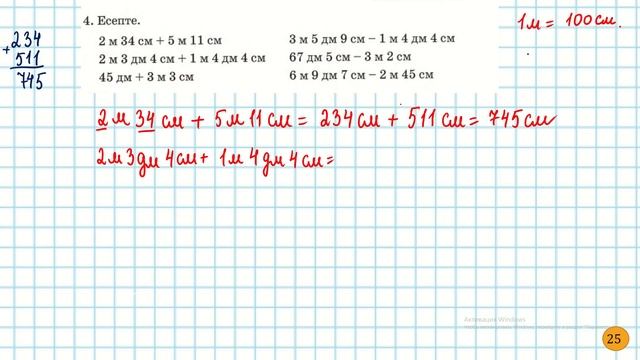 4. Есепте.
2 м 34 см + 5 м 11 см
2 м 3 дм 4 см + 1 м 4 дм 4 см
45 дм + 3 м 3 см
3 м 5 дм 9 см – 1 м 4 дм 4 см
67 дм 5 см – 3 м 2 см
6 м 9 дм 7 см – 2 м 45 см
1м = 100 см.
+ 234
511
745
2 м 34 см + 5 м 11 см = 234 см + 511 см = 745 см
2 м 3 дм 4 см + 1 м 4 дм 4 см =
Активация Windows
25